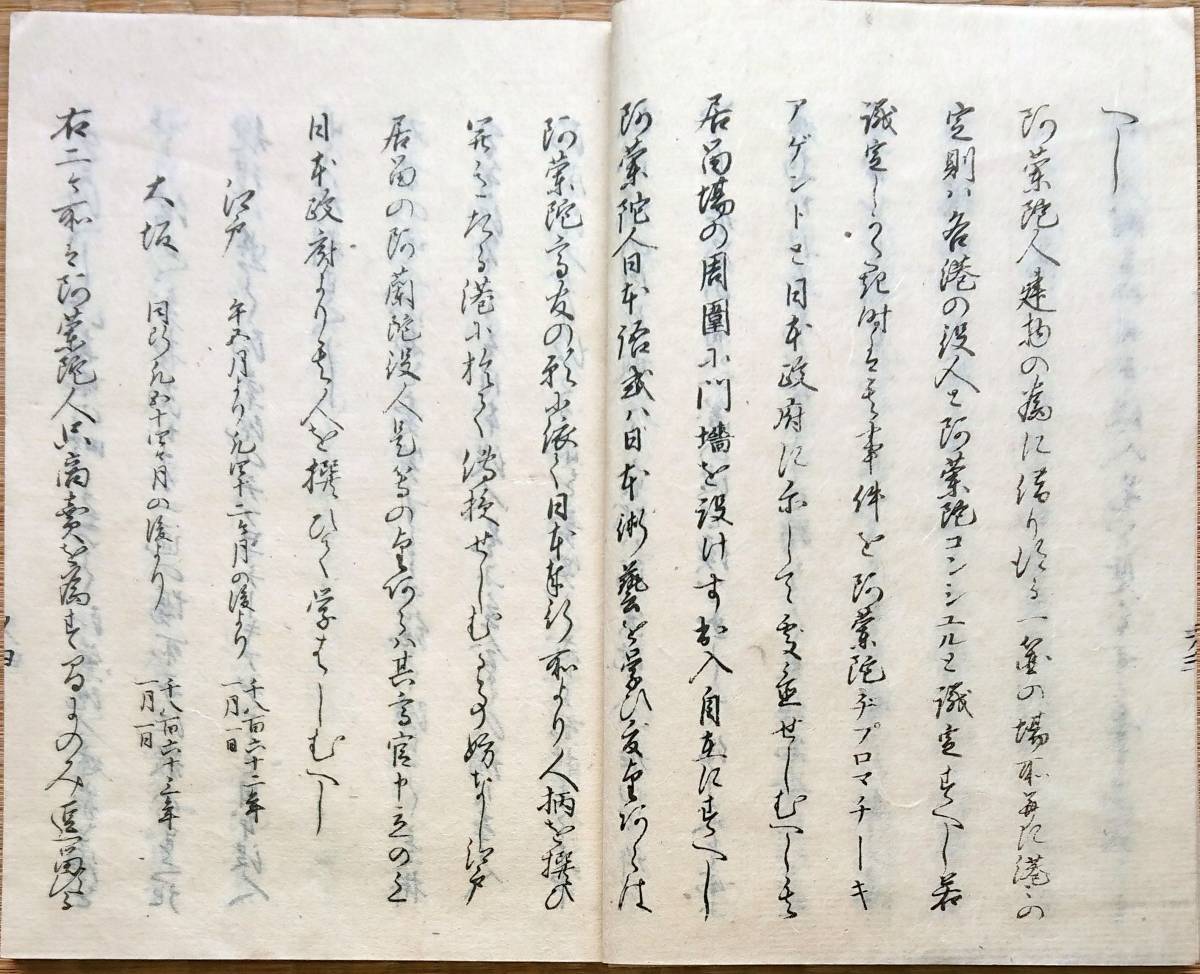 へし
阿蘭陀人建物の為に借り得る一箇の場所並に港々の
定則ハ各港の役人と阿蘭陀コンシユルと議定すへし若
議定しかたき時は其事件を阿蘭陀ヂプロマチーキ
アゲントと日本政府に示して処置せしむへし其
居留場の周囲に門墻を設けす出入自在にすへし
阿蘭陀人日本語或ハ日本術藝を学ひ度望あらは
阿蘭陀高友の願に依て日本奉行所より人柄を撰ひ
開きたる港に於て伝授せしむる事妨なし江戸
居留の阿蘭陀役人是等の望あらハ其高官申立の上
日本政府より其人を撰ひて学はしむへし
江戸 午五月より凡四十二ヶ月の後より 千八百六十二年一月一日
大坂 同断凡五十四ヶ月の後より 千八百六十三年一月一日
右二ヶ所は阿蘭陀人只商売を為す間にのみ逗留する